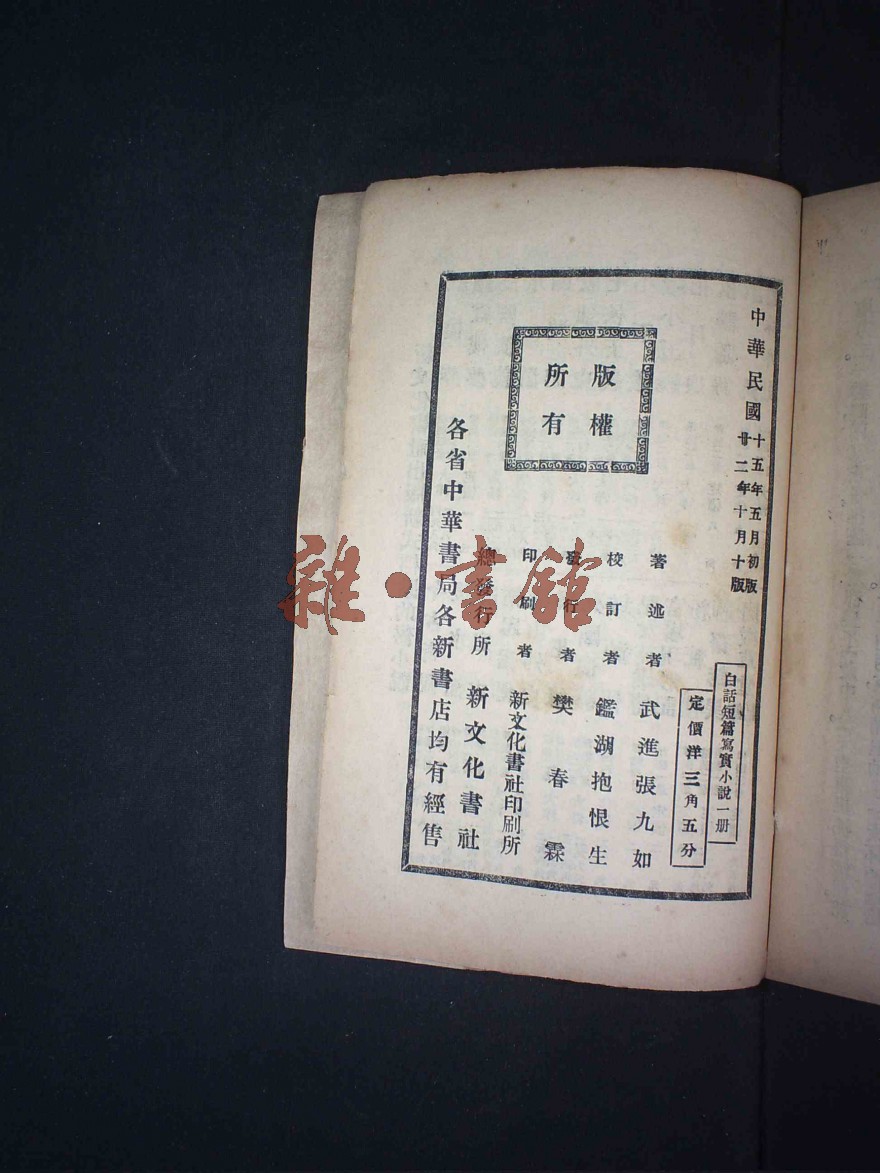 中華民國十五年五月初版
廿二年十月十版
白話短篇寫實小說一册
定價洋三角五分
版權所有
著述者 武進張九如
校訂者 鑑湖抱恨生
發行者 樊春霖
印刷者 新文化書社印刷所
總發行所 新文化書社
各省中華書局各新書店均有經售
雜·書館